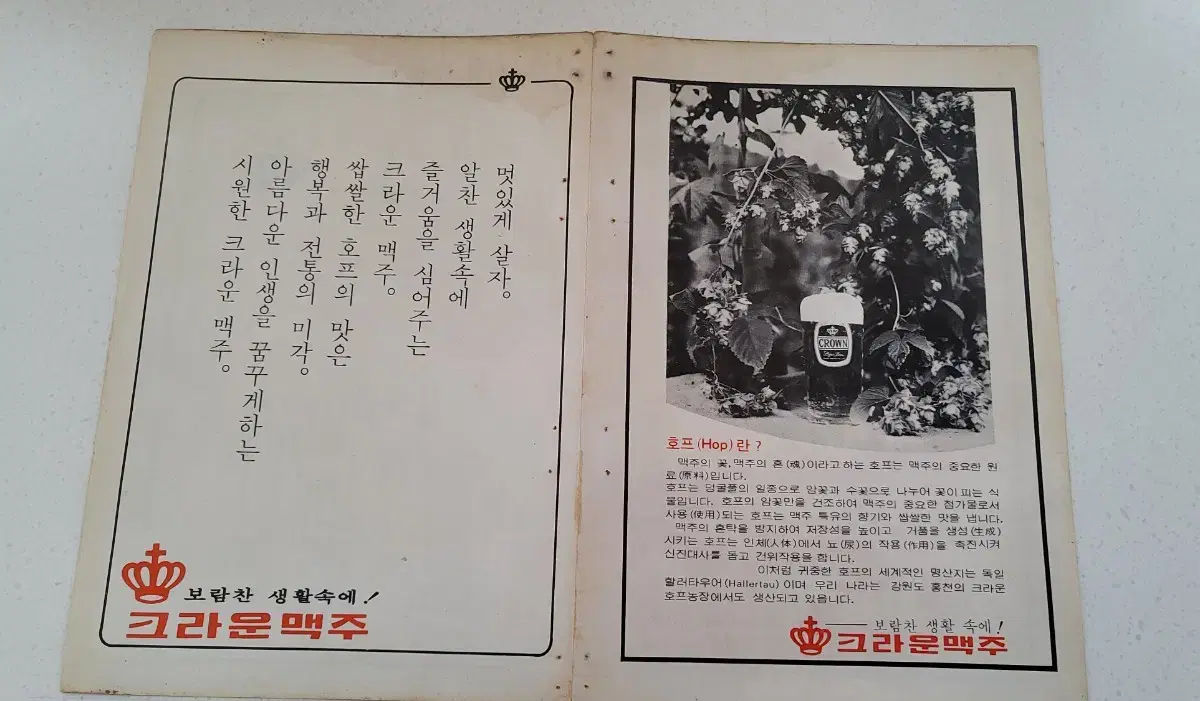 멋있게 살자。
알찬 생활속에
즐거움을 심어주는
크라운 맥주。
쌉쌀한 호프의 맛은
행복과 전통의 미각。
아름다운 인생을 꿈꾸게하는
시원한 크라운 맥주。
보람찬 생활속에!
크라운맥주
CROWN
호프(Hop)란?
맥주의 꽃, 맥주의 혼(魂)이라고 하는 호프는 맥주의 중요한 원
료(原料)입니다.
호프는 덩굴풀의 일종으로 암꽃과 수꽃으로 나누어 꽃이 피는 식
물입니다. 호프의 암꽃만을 건조하여 맥주의 중요한 첨가물로서
사용(使用)되는 호프는 맥주 특유의 향기와 쌉쌀한 맛을 냅니다.
맥주의 혼탁을 방지하여 저장성을 높이고 거품을 생성(生成)
시키는 호프는 인체(人体)에서 뇨(尿)의 작용(作用)을 촉진시켜
신진대사를 돕고 건위작용을 합니다.
이처럼 귀중한 호프의 세계적인 명산지는 독일
할러타우어(Hallertau)이며 우리 나라는 강원도 홍천의 크라운
호프농장에서도 생산되고 있읍니다.
보람찬 생활 속에!
크라운맥주